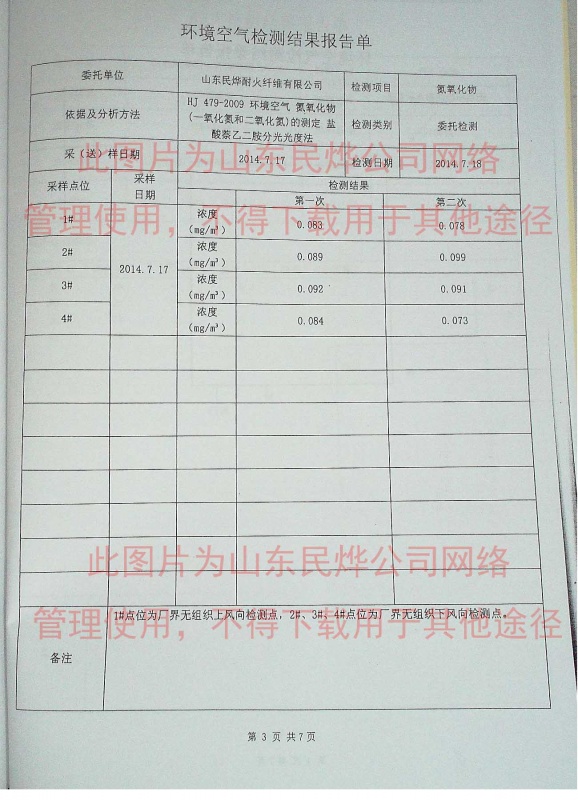 环境空气检测结果报告单
委托单位 山东民烨耐火纤维有限公司 检测项目 氮氧化物
依据及分析方法 HJ 479-2009 环境空气 氮氧化物
(一氧化氮和二氧化氮)的测定 盐
酸萘乙二胺分光光度法 检测类别 委托检测
采（送）样日期 2014.7.17 检测日期 2014.7.18
此图片为山东民烨公司网络
管理使用，不得下载用于其他途径
采样点位 采样
日期 检测结果
第一次 第二次
1# 2014.7.17 浓度
(mg/m³) 0.083 0.078
2# 浓度
(mg/m³) 0.089 0.099
3# 浓度
(mg/m³) 0.092 0.091
4# 浓度
(mg/m³) 0.084 0.073
此图片为山东民烨公司网络
管理使用，不得下载用于其他途径
备注 1#点位为厂界无组织上风向检测点，2#、3#、4#点位为厂界无组织下风向检测点。
第 3 页 共 7 页